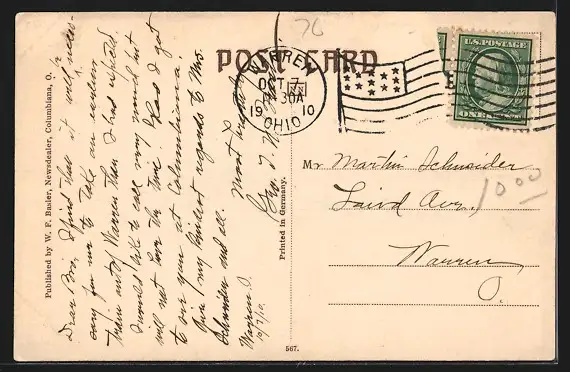 76
POST CARD
WARREN
OCT 7
30A
19 10
OHIO
U.S. POSTAGE
ONE CENT
Published by W. F. Basler, Newsdealer, Columbiana, O.
Warren O.
10/7/10.
Dear Bro, I find that it will neces-
sary for me to take an earlier
train out of Warren than I had expected.
Should like to call very much but
will not have the time. Glad I got
to see you at Columbiana.
Give my kindest regards to Mrs.
Schneider and all.
Most truly
Geo. T.
Printed in Germany.
Mr Martin Schneider
Laird Ave.,
Warren,
O.
10 00
567.